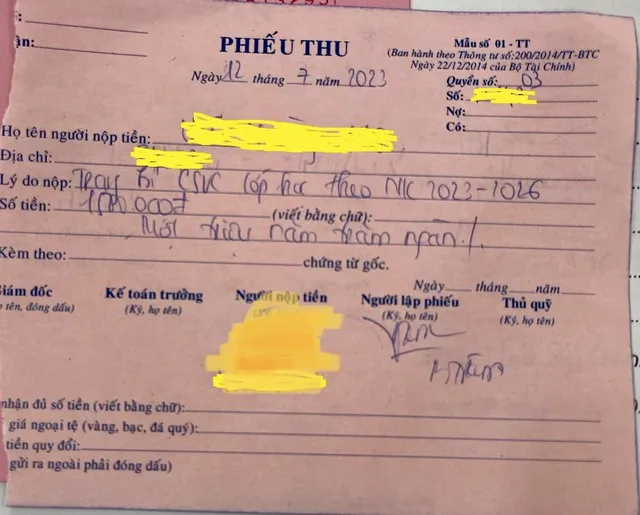 ị:
ận:
PHIẾU THU
Mẫu số 01 - TT
(Ban hành theo Thông tư số:200/2014/TT-BTC
Ngày 22/12/2014 của Bộ Tài Chính)
Ngày 12 tháng 7 năm 2023
Quyển số: 03
Số:
Nợ:
Có:
Họ tên người nộp tiền:
Địa chỉ:
Lý do nộp: Trang bị CSVC lớp học theo NK 2023-2026
Số tiền: 1500.000đ (viết bằng chữ):
Một triệu năm trăm ngàn /.
Kèm theo: chứng từ gốc.
Ngày tháng năm
Giám đốc Kế toán trưởng Người nộp tiền Người lập phiếu Thủ quỹ
tên, đóng dấu) (Ký, họ tên) (Ký, họ tên) (Ký, họ tên)
nhận đủ số tiền (viết bằng chữ):
giá ngoại tệ (vàng, bạc, đá quý):
tiền quy đổi:
gửi ra ngoài phải đóng dấu)